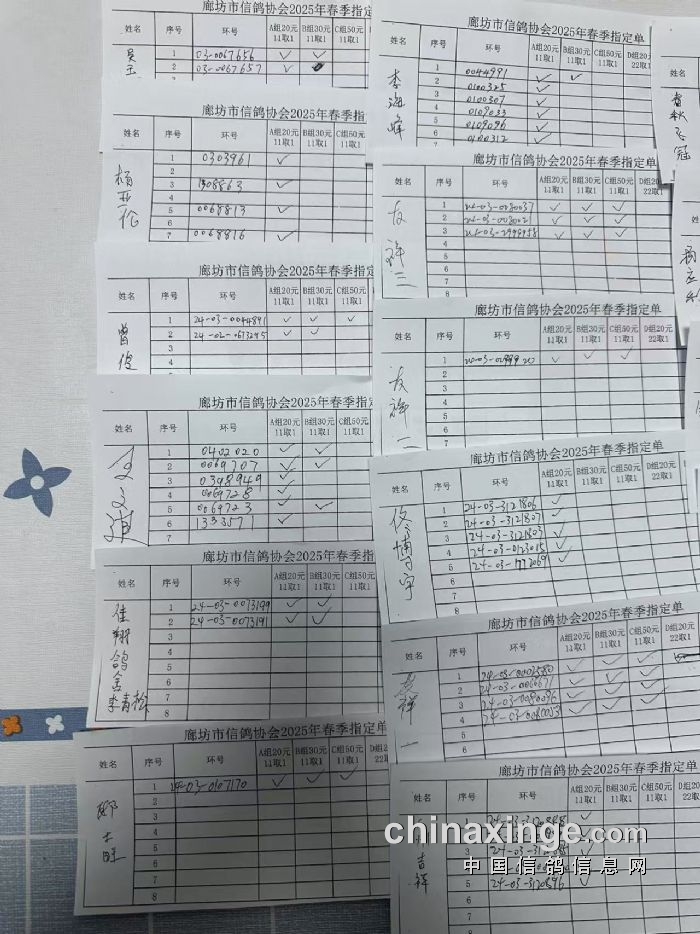 廊坊市信鸽协会2025年春季指定
姓名 序号 环号 A组20元 11取1 B组30元 11取1 C组50元 11取1
吴玉
1 03-0067656 ✓ ✓
2 03-0067657 ✓
廊坊市信鸽协会2025年春季指定
姓名 序号 环号 A组20元 11取1 B组30元 11取1 C组50元 11取1
杨亚松
1 0303961 ✓
2
3 1308863 ✓
4
5 0068813 ✓
6
7 0068816 ✓
廊坊市信鸽协会2025年春季指定
姓名 序号 环号 A组20元 11取1 B组30元 11取1 C组50元 11取1
曾俊
1 24-03-0044891 ✓ ✓ ✓
2 24-02-0673245 ✓ ✓
3
4
5
廊坊市信鸽协会2025年春季指定
姓名 序号 环号 A组20元 11取1 B组30元 11取1 C组50元 11取1
1 0402020 ✓ ✓
2 0069707 ✓ ✓
3 0398949 ✓
4 0069728 ✓
5 0069723 ✓ ✓
6 1333571 ✓
7
廊坊市信鸽协会2025年春季指定
姓名 序号 环号 A组20元 11取1 B组30元 11取1 C组50元 11取1
佳翔鸽舍李青松
1 24-03-0073199 ✓ ✓
2 24-03-0073191 ✓ ✓
3
4
5
6
7
8
廊坊市信鸽协会2025年春季指定单
姓名 序号 环号 A组20元 11取1 B组30元 11取1 C组50元 11取1 D组200 22取1
1 24-03-0107170 ✓ ✓ ✓
2
3
4
5
6
7
8
廊坊市信鸽协会2025年春季指定单
姓名 序号 环号 A组20元 11取1 B组30元 11取1 C组50元 11取1 D组200元 22取1
李海峰
1 0044991 ✓ ✓
2 0100325 ✓
3 0100307 ✓
4 0109033 ✓
5 0109096 ✓
6 0100312 ✓
廊坊市信鸽协会2025年春季指定单
姓名 序号 环号 A组20元 11取1 B组30元 11取1 C组50元 11取1 D组20 22取
友祥三
1 24-03-0080037 ✓ ✓ ✓
2 24-03-0080021 ✓ ✓ ✓
3 24-03-2998958 ✓ ✓ ✓
4
5
6
7
8
廊坊市信鸽协会2025年春季指定单
姓名 序号 环号 A组20元 11取1 B组30元 11取1 C组50元 11取1 D组200元 22取1
友祥二
1 ✓ ✓ ✓
2
3
4
5
6
廊坊市信鸽协会2025年春季指定单
姓名 序号 环号 A组20元 11取1 B组30元 11取1 C组50元 11取1 D组200元 22取1
佟博宇
1 24-03-3121806 ✓
2 24-03-3121807 ✓
3 24-03-3121803 ✓
4 24-03-0123015 ✓
5 ✓
6
7
8
廊坊市信鸽协会2025年春季指定单
姓名 序号 环号 A组20元 11取1 B组30元 11取1 C组50元 11取1 D组200元 22取1
友祥一
1 24-03-0003580 ✓ ✓ ✓
2 24-03-0060671 ✓ ✓ ✓
3 24-03-0080096 ✓ ✓ ✓
4 24-03-0080053 ✓ ✓ ✓
5
6
廊坊市信鸽协会2025年春季指定单
姓名 序号 环号 A组20元 11取1 B组30元 11取1 C组50元 11取1 D组200 22取1
吉祥
5 24-03-3120596 ✓
6
7
8
chinaxinge.com
中国信鸽信息网